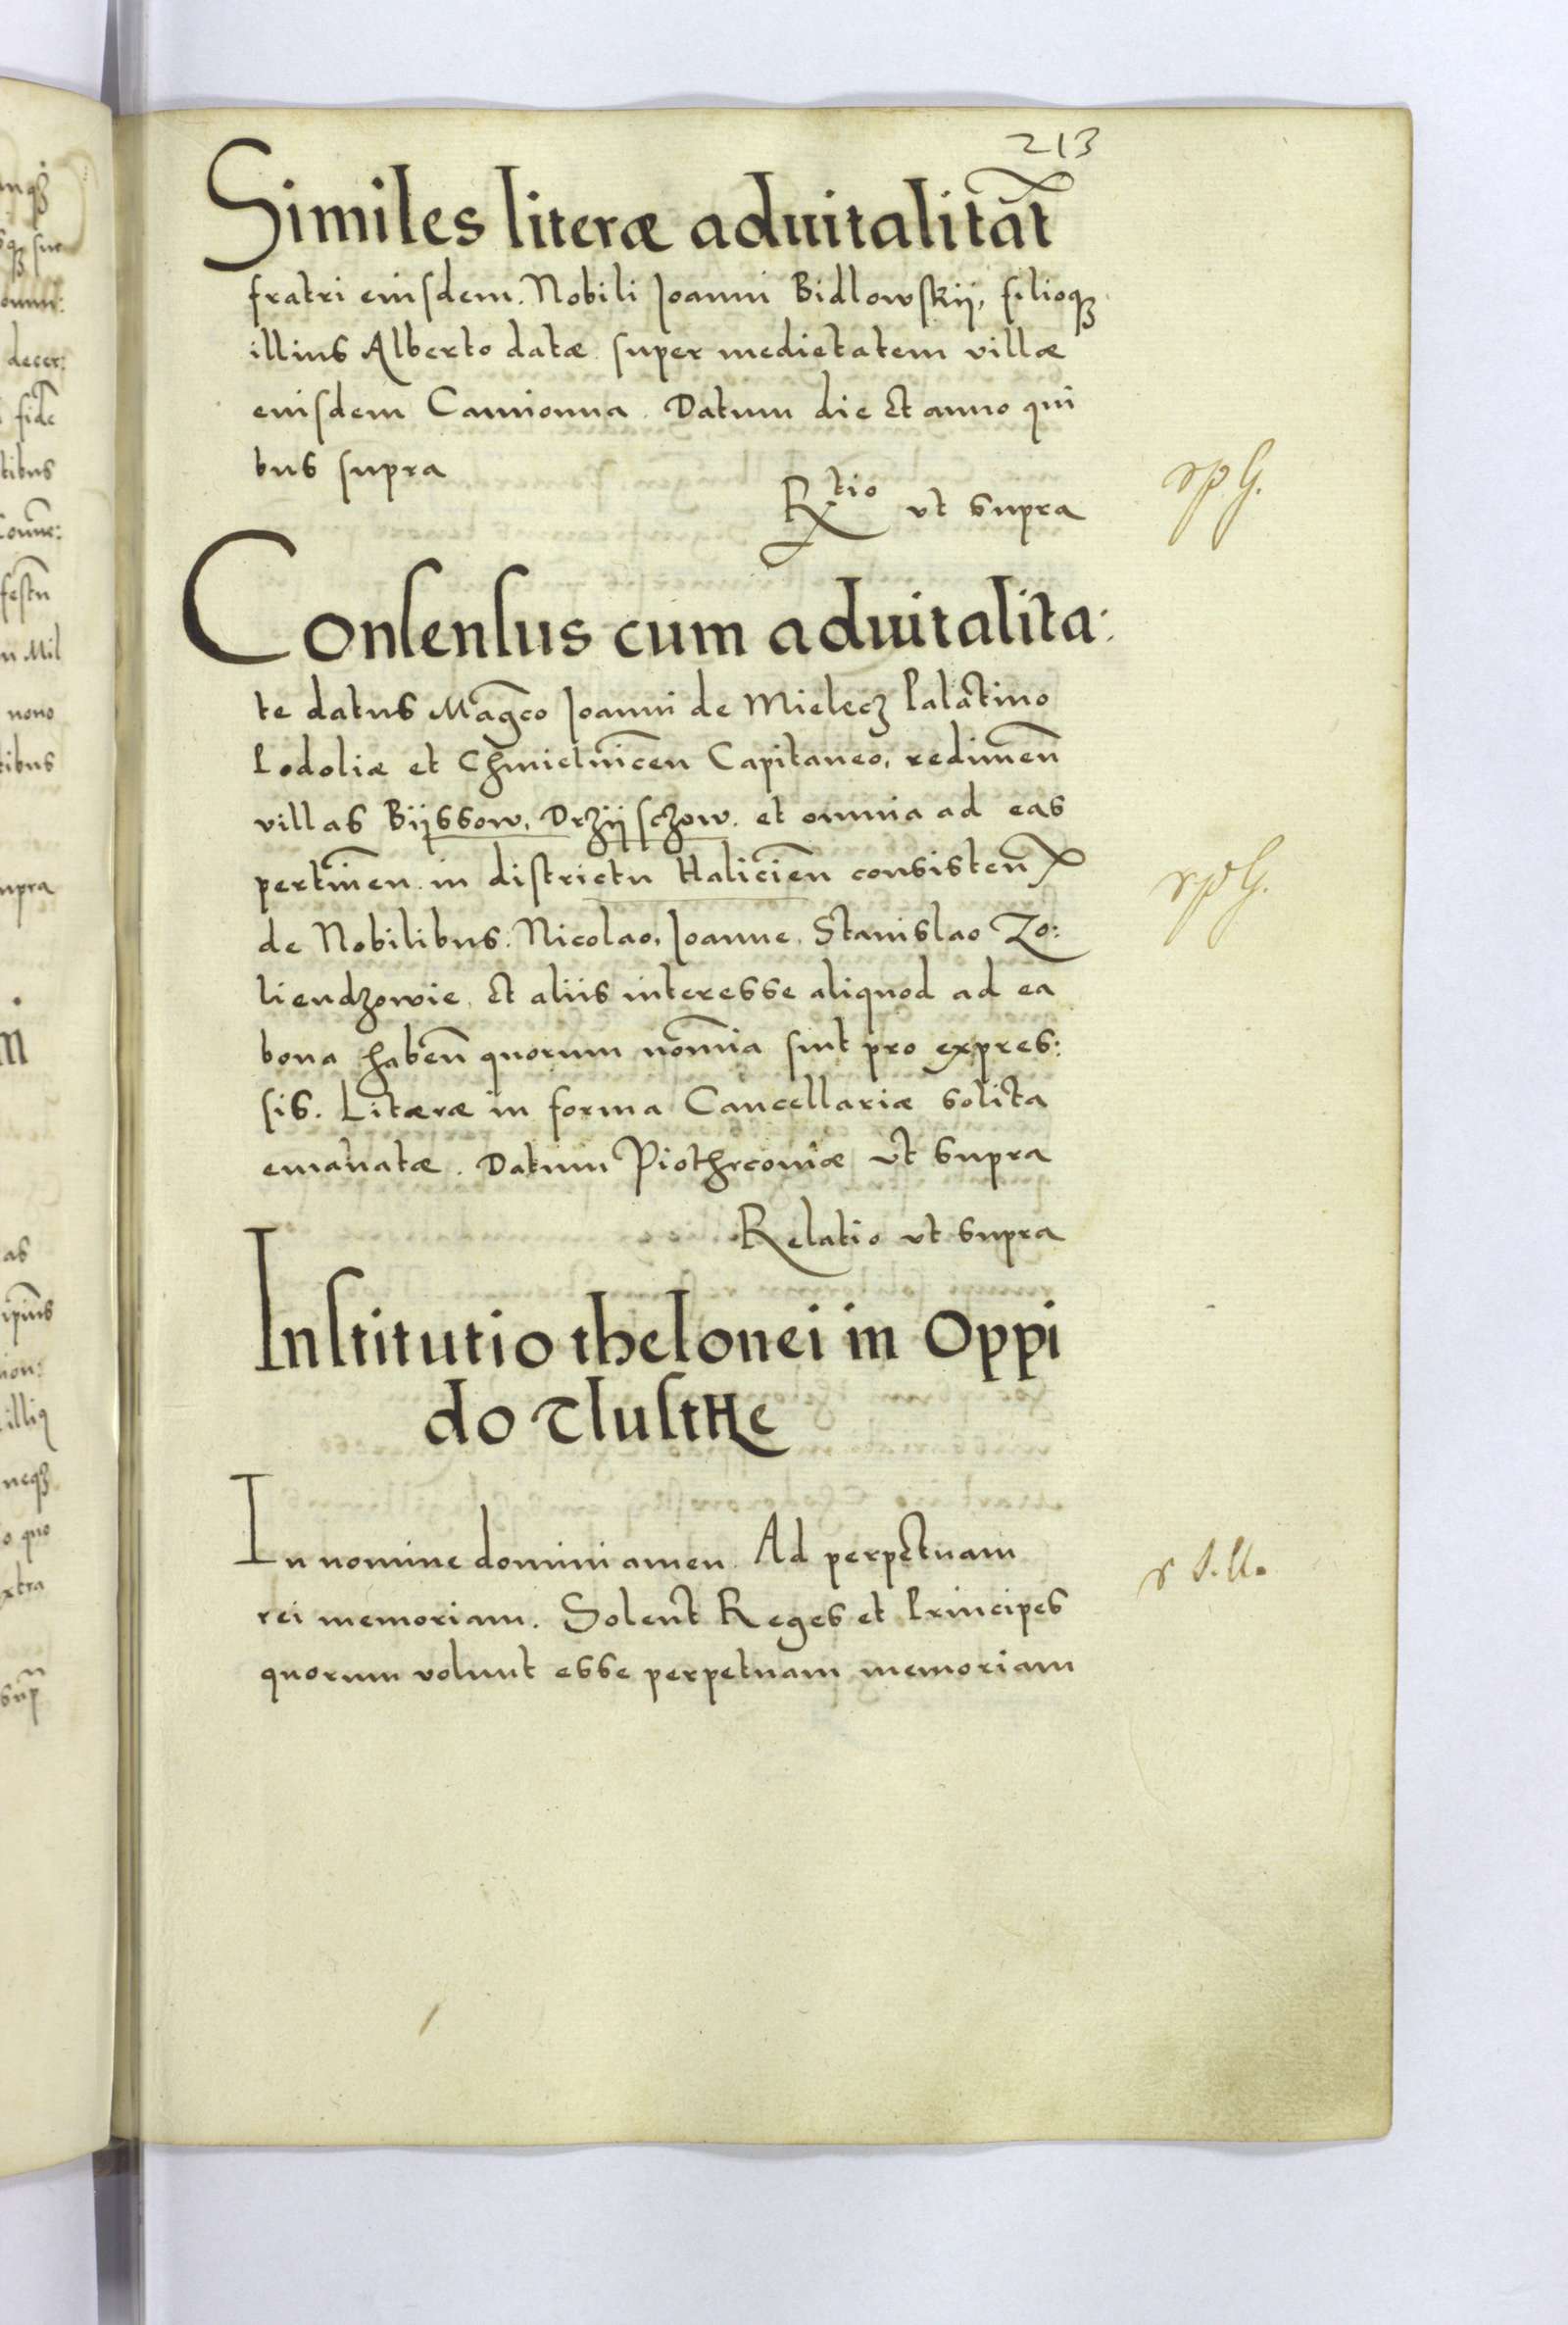 213
Similes literæ aduitalitat̃
fratri eiusdem. Nobili Joanni Bidlowskij, filioqꝫ
illius Alberto datæ super medietatem villæ
eiusdem Camionna. Datum die et anno qui
bus supra
Rtio vt supra
Consensus cum aduitalita:
te datus Mag̃co Joanni de Mielecz Palatino
Podoliæ et Chmielnicen̄ Capitaneo, redimen̄
villas Bijssow, Drzijsczow. et omnia ad eas
pertinen̄. in districtu Halicien̄ consisten̄
de Nobilibus. Nicolao, Joanne, Stanislao Zo:
liendzowie, et aliis interesse aliquod ad ea
bona haben̄ quorum nom̄ia sint pro expres:
sis. Literæ in forma Cancellariæ solita
emanatæ. Datum Piothrcouiæ vt supra
Relatio vt supra
Institutio thelonei in Oppi
do Tlusthe
In nomine domini amen. Ad perpetuam
rei memoriam. Solent Reges et Principes
quorum volunt esse perpetuam memoriam